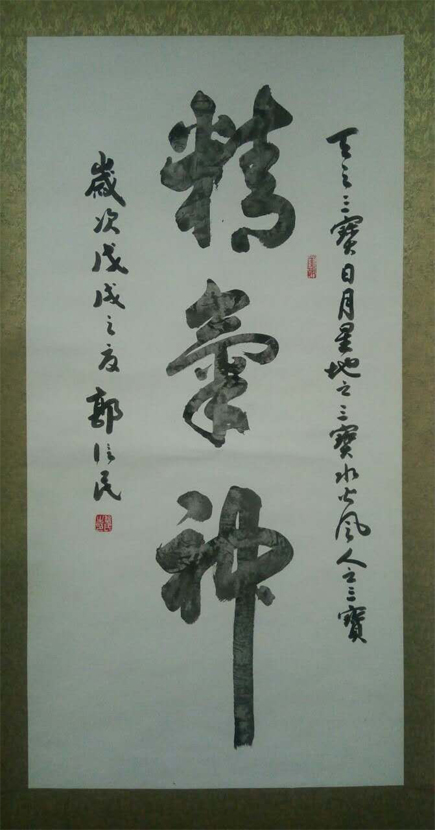 天之三寶日月星地之三寶水火風人之三寶
精氣神
歲次戊戌之夏 郭氏民